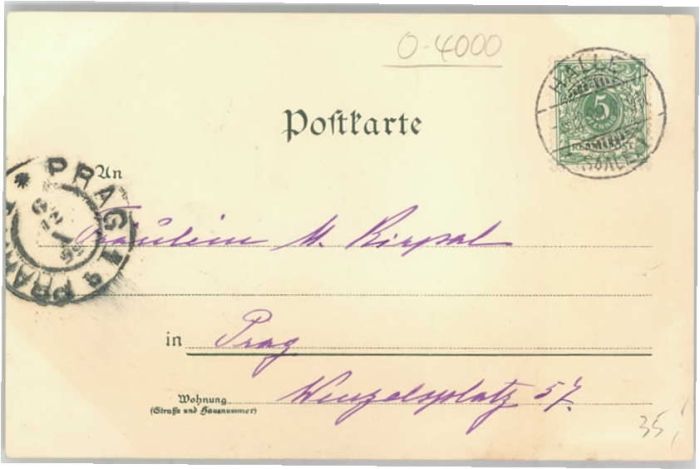 O-4000
HALLE
5
(SAALE)
Postkarte
PRAG 1
An
Fräulein M.
in Prag
Wohnung
(Straße und Hausnummer)
Wenzelsplatz 57.
35,-